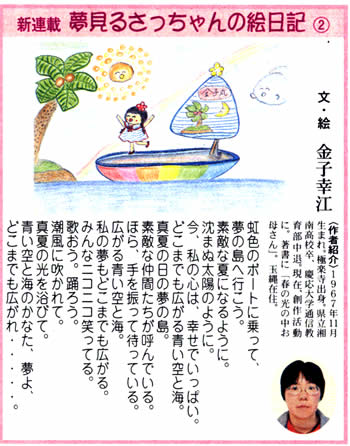 新連載 夢見るさっちゃんの絵日記 ②
金子丸
文・絵 金子幸江
〈作者紹介〉1967年11月
生まれ。極楽寺出身。県立湘
南高校卒、慶応大学通信教
育部中退。現在、創作活動
に。著書に「春の光の中お
母さん」。玉縄在住。
虹色のボートに乗って、
夢の島へ行こう。
素敵な夏になるように。
沈まぬ太陽のように。
今、私の心は、幸せでいっぱい。
どこまでも広がる青い空と海。
真夏の日の夢の島。
素敵な仲間たちが呼んでいる。
ほら、手を振って待っている。
広がる青い空と海。
私の夢もどこまでも広がる。
みんなニコニコ笑ってる。
歌おう。踊ろう。
潮風に吹かれて。
真夏の光を浴びて。
青い空と海のかなた、夢よ、
どこまでも広がれ・・・・・。